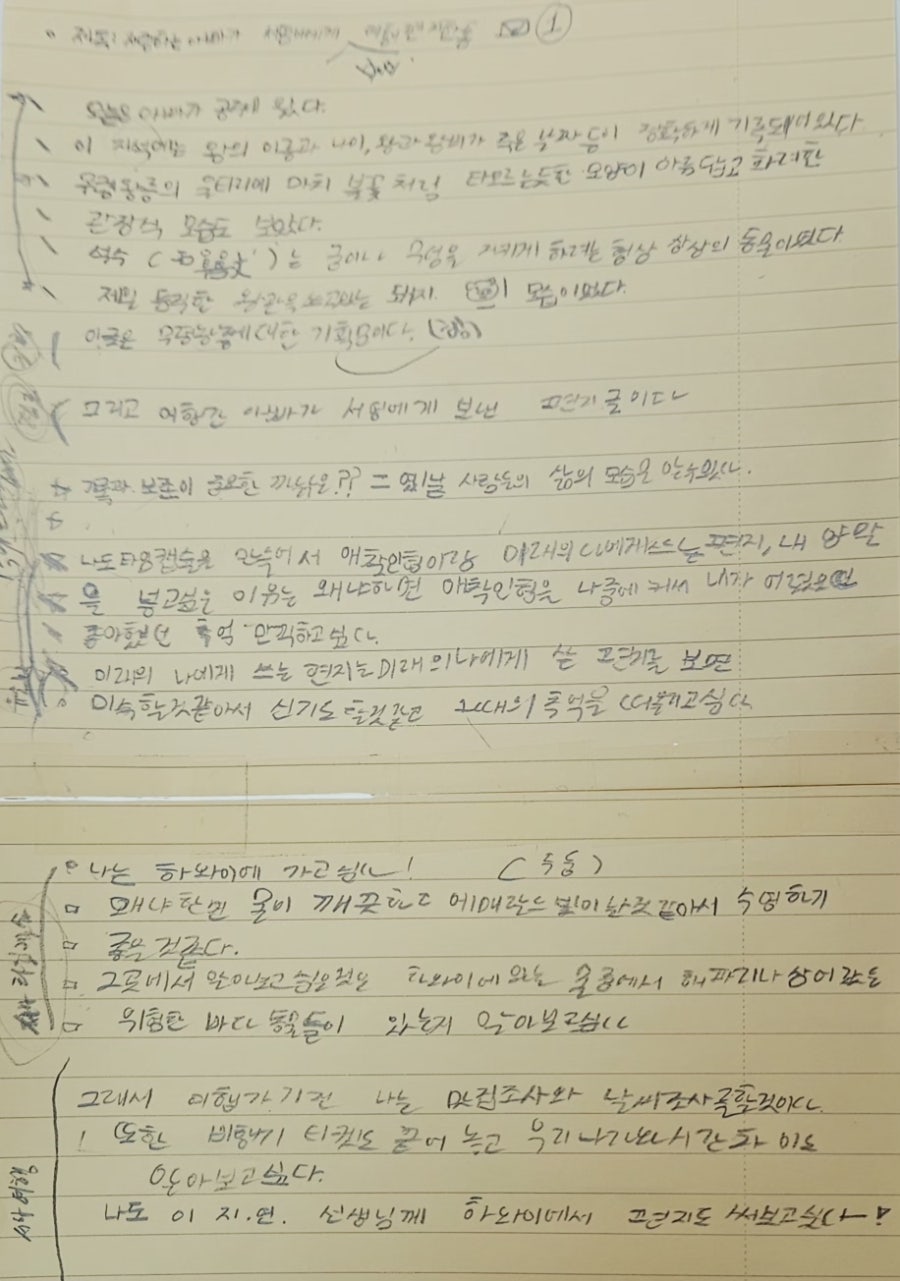 제목: 여행하는 아빠가 서영에게 ①
오늘은 아빠가 공주에 왔다.
이 지석에는 왕의 이름과 나이, 왕과 왕비가 죽은 날짜 등이 정확하게 기록돼어 있다
무령왕릉의 울타리에 마치 불꽃 처럼 타오르는듯한 모양이 아름답고 화려한
관장식 모습도 보았다.
석수 ( ) 는 굴이나 무덤을 지키게 하려는 형상 상상의 동물이였다.
제일 동작한 왕관을 쓰고있는 돼지. 모습이였다.
이글은 무령왕릉에 대한 기획문이다.
그리고 여행간 아빠가 서영에게 보낸 편지글이다
기록과 보존이 중요한 까닭은?? = 옛날 사람들의 삶의 모습을 알수있다.
나도 타임캡슐을 만들어서 애착인형이랑 미래의 나에게쓰는편지, 내 양말
을 넣고싶은 이유는 왜냐하면 애착인형을 나중에 커서 내가 어렸을때
좋아했던 추억 만끽하고 싶다.
미래의 나에게 쓰는 편지는 미래의나에게 쓴 편지를 보면
미숙할것같아서 신기도 할것같고 그때의 추억을 떠올리고싶다.
나는 하와이에 가고 싶다! ( )
왜냐하면 물이 깨끗하고 에매랄드 빛이 날것 같아서 수영하기
좋은 것 같다.
그곳에서 알아보고 싶은 것은 하와이에 있는 물 중에서 해파리나 상어 같은
위험한 바다 동물들이 있는지 알아보고싶다
그래서 여행가기전 나는 맛집조사와 날씨조사를할것이다.
또한 비행기 티켓도 끊어 놓고 우리나라와시간 차이도
알아보고싶다.
나도 이 지. 연. 선생님께 하와이에서 편지도 써보고싶다~!